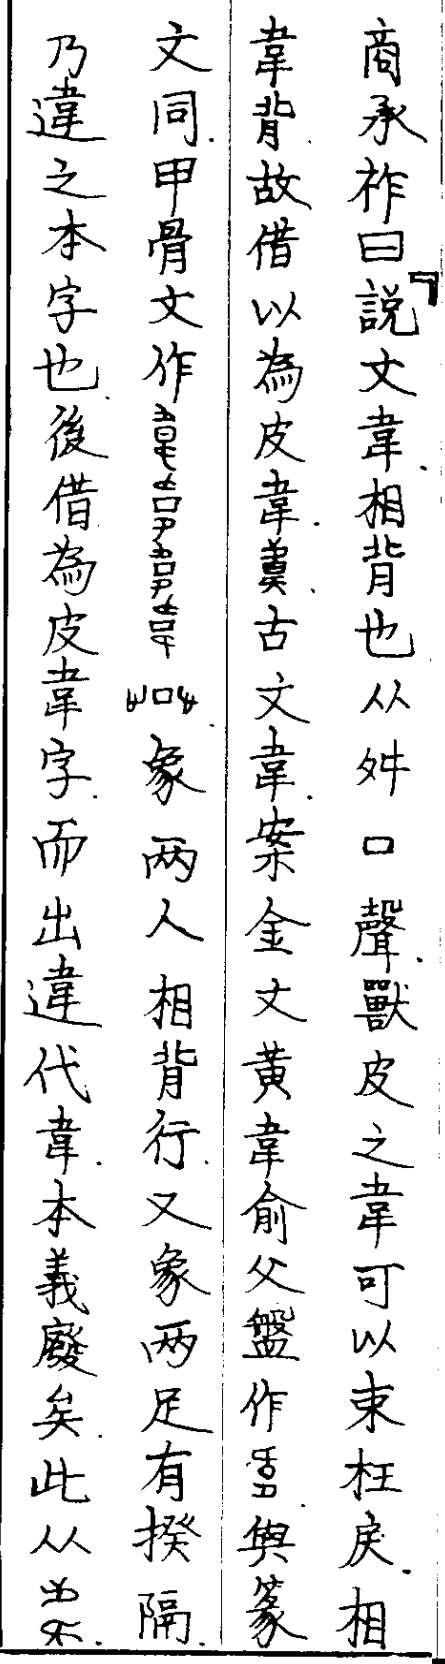 商承祚曰「說文韋.相背也从舛口聲.獸皮之韋可以束枉戾.相
韋背.故借以為皮韋.古文韋.案金文黃韋俞父盤作.與篆
文同.甲骨文作.象兩人相背行.又象兩足有揆隔.
乃違之本字也.後借為皮韋字.而出違代韋.本義廢矣.此从